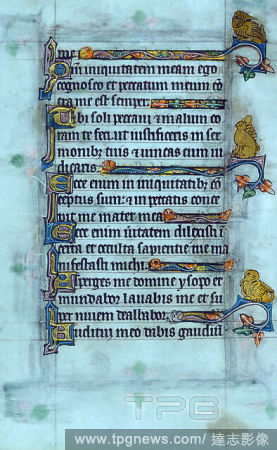 Qm̄ iniquitatem meam ego
cognosco et peccatum meum cō
tra me est semper
Tibi soli peccaui et malum co
ram te feci ut iustificeris in ser
monib; tuis et uincas cum iu
dicaris
Ecce enim in iniquitatib; co
ceptus sum: et in peccatis conce
pit me mater mea
Ecce enim ūitatem dilexisti ī
certa et occulta sapientie tue ma
nifestasti michi
Asperges me domine ysopo et
mundabor lauabis me et su
per niuem dealbabor
Auditui meo dabis gaudiū
TPG
www.tpgnews.com/達志影像